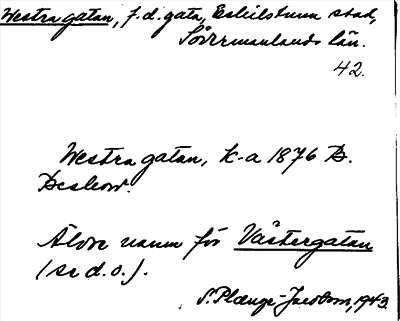 Westra gatan, f.d. gata, Eskilstuna stad,
Södermanlands län.
42.
Westra gatan, k-a 1876 B.
Beskow.
Äldre namn för Västergatan
(se d.o.).
S. Plænge-Jacobson, 1943.